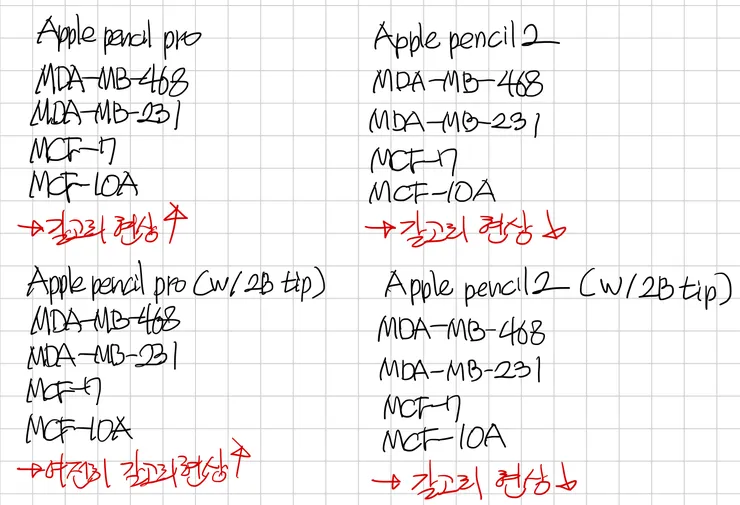 Apple pencil pro
MDA-MB-468
MDA-MB-231
MCF-7
MCF-10A
→ 갈고리 현상 ↑
Apple pencil 2
MDA-MB-468
MDA-MB-231
MCF-7
MCF-10A
→ 갈고리 현상 ↓
Apple pencil pro (w/2B tip)
MDA-MB-468
MDA-MB-231
MCF-7
MCF-10A
→ 여전히 갈고리현상 ↑
Apple pencil 2 (w/2B tip)
MDA-MB-468
MDA-MB-231
MCF-7
MCF-10A
→ 갈고리 현상 ↓